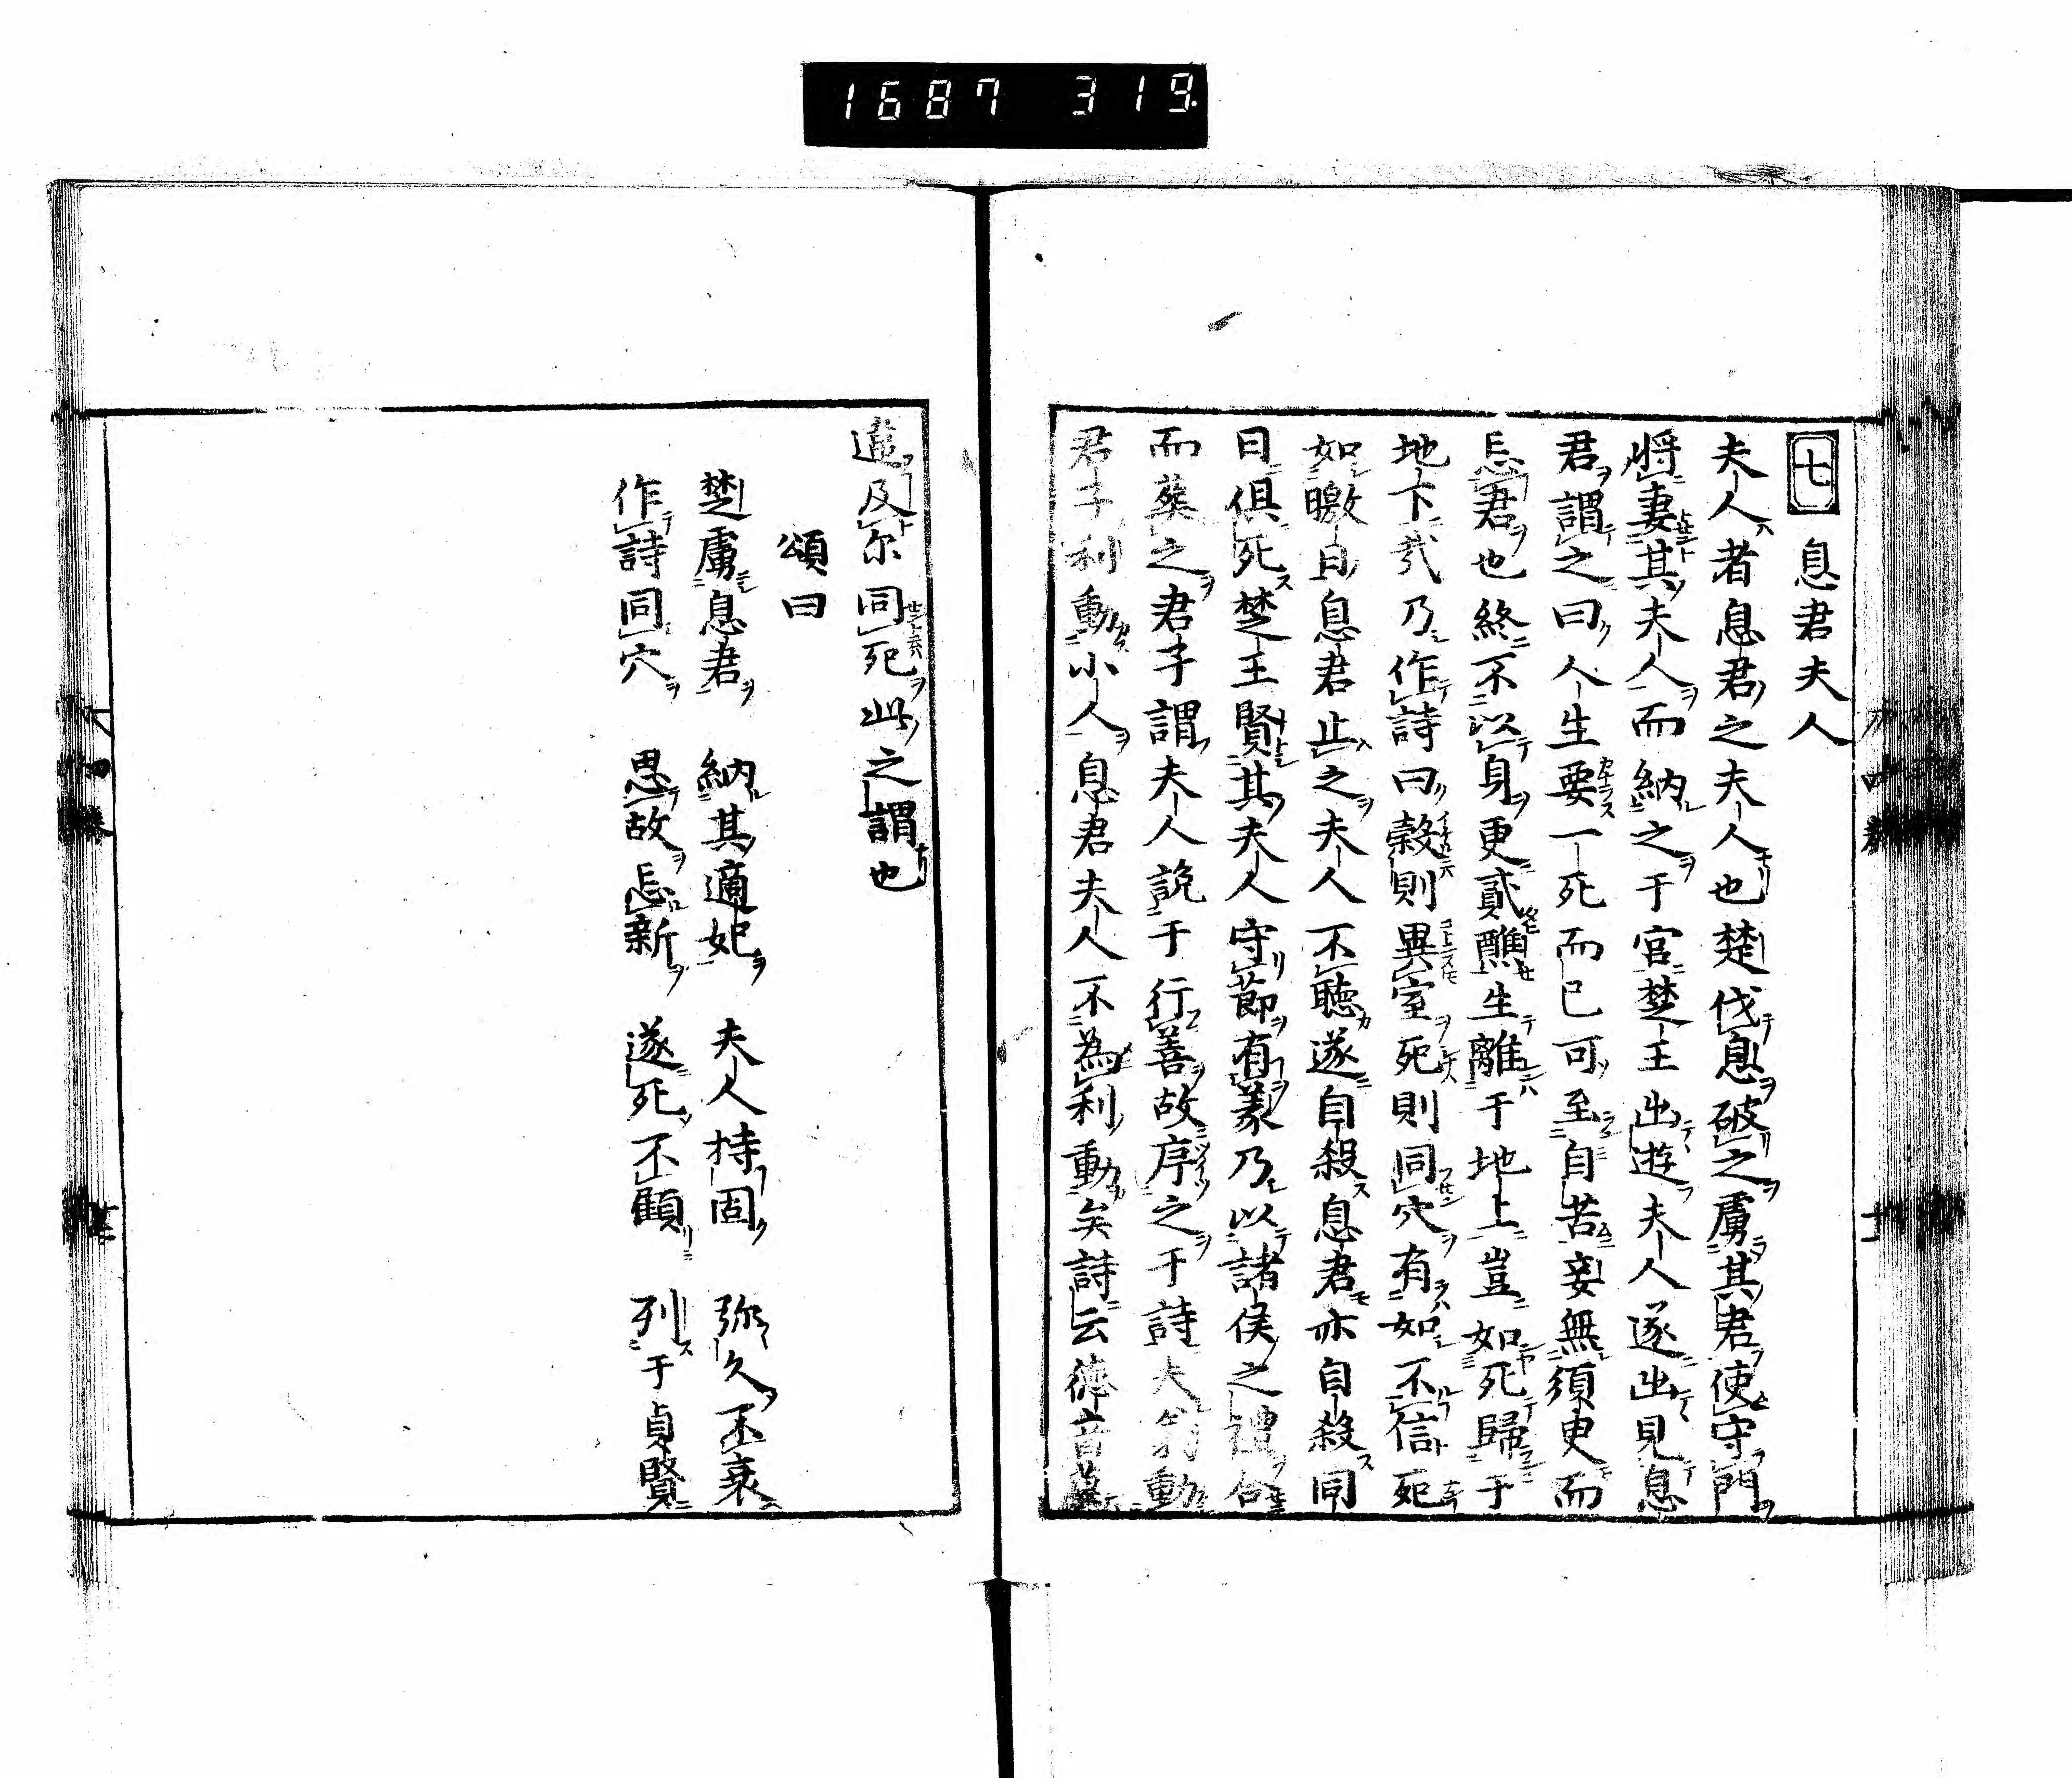 1687 319
七 息君夫人
夫人者息君之夫人也楚伐息破之虜其君使守門
将妻其夫人而納之于宮楚王出遊夫人遂出見息
君謂之曰人生要一死而已可至自苦妾無須臾而
忘君也終不以身更貳醮生離于地上豈如死歸于
地下㢤乃作詩曰榖則異室死則同穴有如不信死
如曒日息君止之夫人不聴遂自殺息君亦自殺同
日俱死楚王賢其夫人守莭有義乃以諸侯之禮合
而葬之君子謂夫人説于行善故序之于詩夫義動
君子利動小人息君夫人不為利動矣詩云徳音莫
違及尓同死此之謂也
頌曰
楚虜息君 納其適妃 夫人持固 弥久不衰
作詩同穴 思故忘新 遂死不顧 列于貞賢